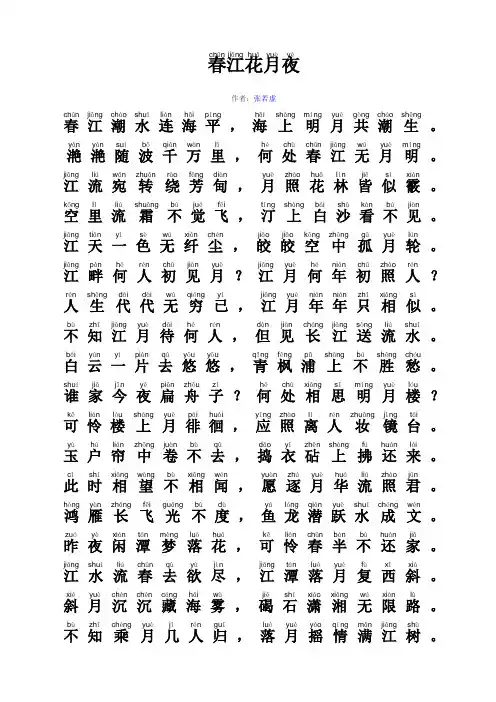 chūn jiāng huā yuè yè
春江花月夜
作者：张若虚
chūn jiāng cháo shuǐ lián hǎi píng hǎi shàng míng yuè gòng cháo shēng
春江潮水连海平，海上明月共潮生。
yàn yàn suí bō qiān wàn lǐ hé chù chūn jiāng wú yuè míng
滟滟随波千万里，何处春江无月明。
jiāng liú wǎn zhuǎn rào fāng diàn yuè zhào huā lín jiē sì xiàn
江流宛转绕芳甸，月照花林皆似霰。
kōng lǐ liú shuāng bù jué fēi tīng shàng bái shā kàn bú jiàn
空里流霜不觉飞，汀上白沙看不见。
jiāng tiān yí sè wú xiān chén jiǎo jiǎo kōng zhōng gū yuè lún
江天一色无纤尘，皎皎空中孤月轮。
jiāng pàn hé rén chū jiàn yuè jiāng yuè hé nián chū zhào rén
江畔何人初见月？江月何年初照人？
rén shēng dài dài wú qióng yǐ jiāng yuè nián nián zhǐ xiāng sì
人生代代无穷已，江月年年只相似。
bù zhī jiāng yuè dài hé rén dàn jiàn cháng jiāng sòng liú shuǐ
不知江月待何人，但见长江送流水。
bái yún yí piàn qù yōu yōu qīng fēng pǔ shàng bú shèng chóu
白云一片去悠悠，青枫浦上不胜愁。
shuí jiā jīn yè piān zhōu zǐ hé chù xiāng sī míng yuè lóu
谁家今夜扁舟子？何处相思明月楼？
kě lián lóu shàng yuè pái huái yīng zhào lí rén zhuāng jìng tái
可怜楼上月徘徊，应照离人妆镜台。
yù hù lián zhōng juǎn bú qù dǎo yī zhēn shàng fú huán lái
玉户帘中卷不去，捣衣砧上拂还来。
cǐ shí xiāng wàng bù xiāng wén yuàn zhú yuè huá liú zhào jūn
此时相望不相闻，愿逐月华流照君。
hóng yàn cháng fēi guāng bú dù yú lóng qián yuè shuǐ chéng wén
鸿雁长飞光不度，鱼龙潜跃水成文。
zuó yè xián tán mèng luò huā kě lián chūn bàn bù huán jiā
昨夜闲潭梦落花，可怜春半不还家。
jiāng shuǐ liú chūn qù yù jìn jiāng tán luò yuè fù xī xiá
江水流春去欲尽，江潭落月复西斜。
xié yuè chén chén cáng hǎi wù jié shí xiāo xiāng wú xiàn lù
斜月沉沉藏海雾，碣石潇湘无限路。
bù zhī chéng yuè jǐ rén guī luò yuè yáo qíng mǎn jiāng shù
不知乘月几人归，落月摇情满江树。